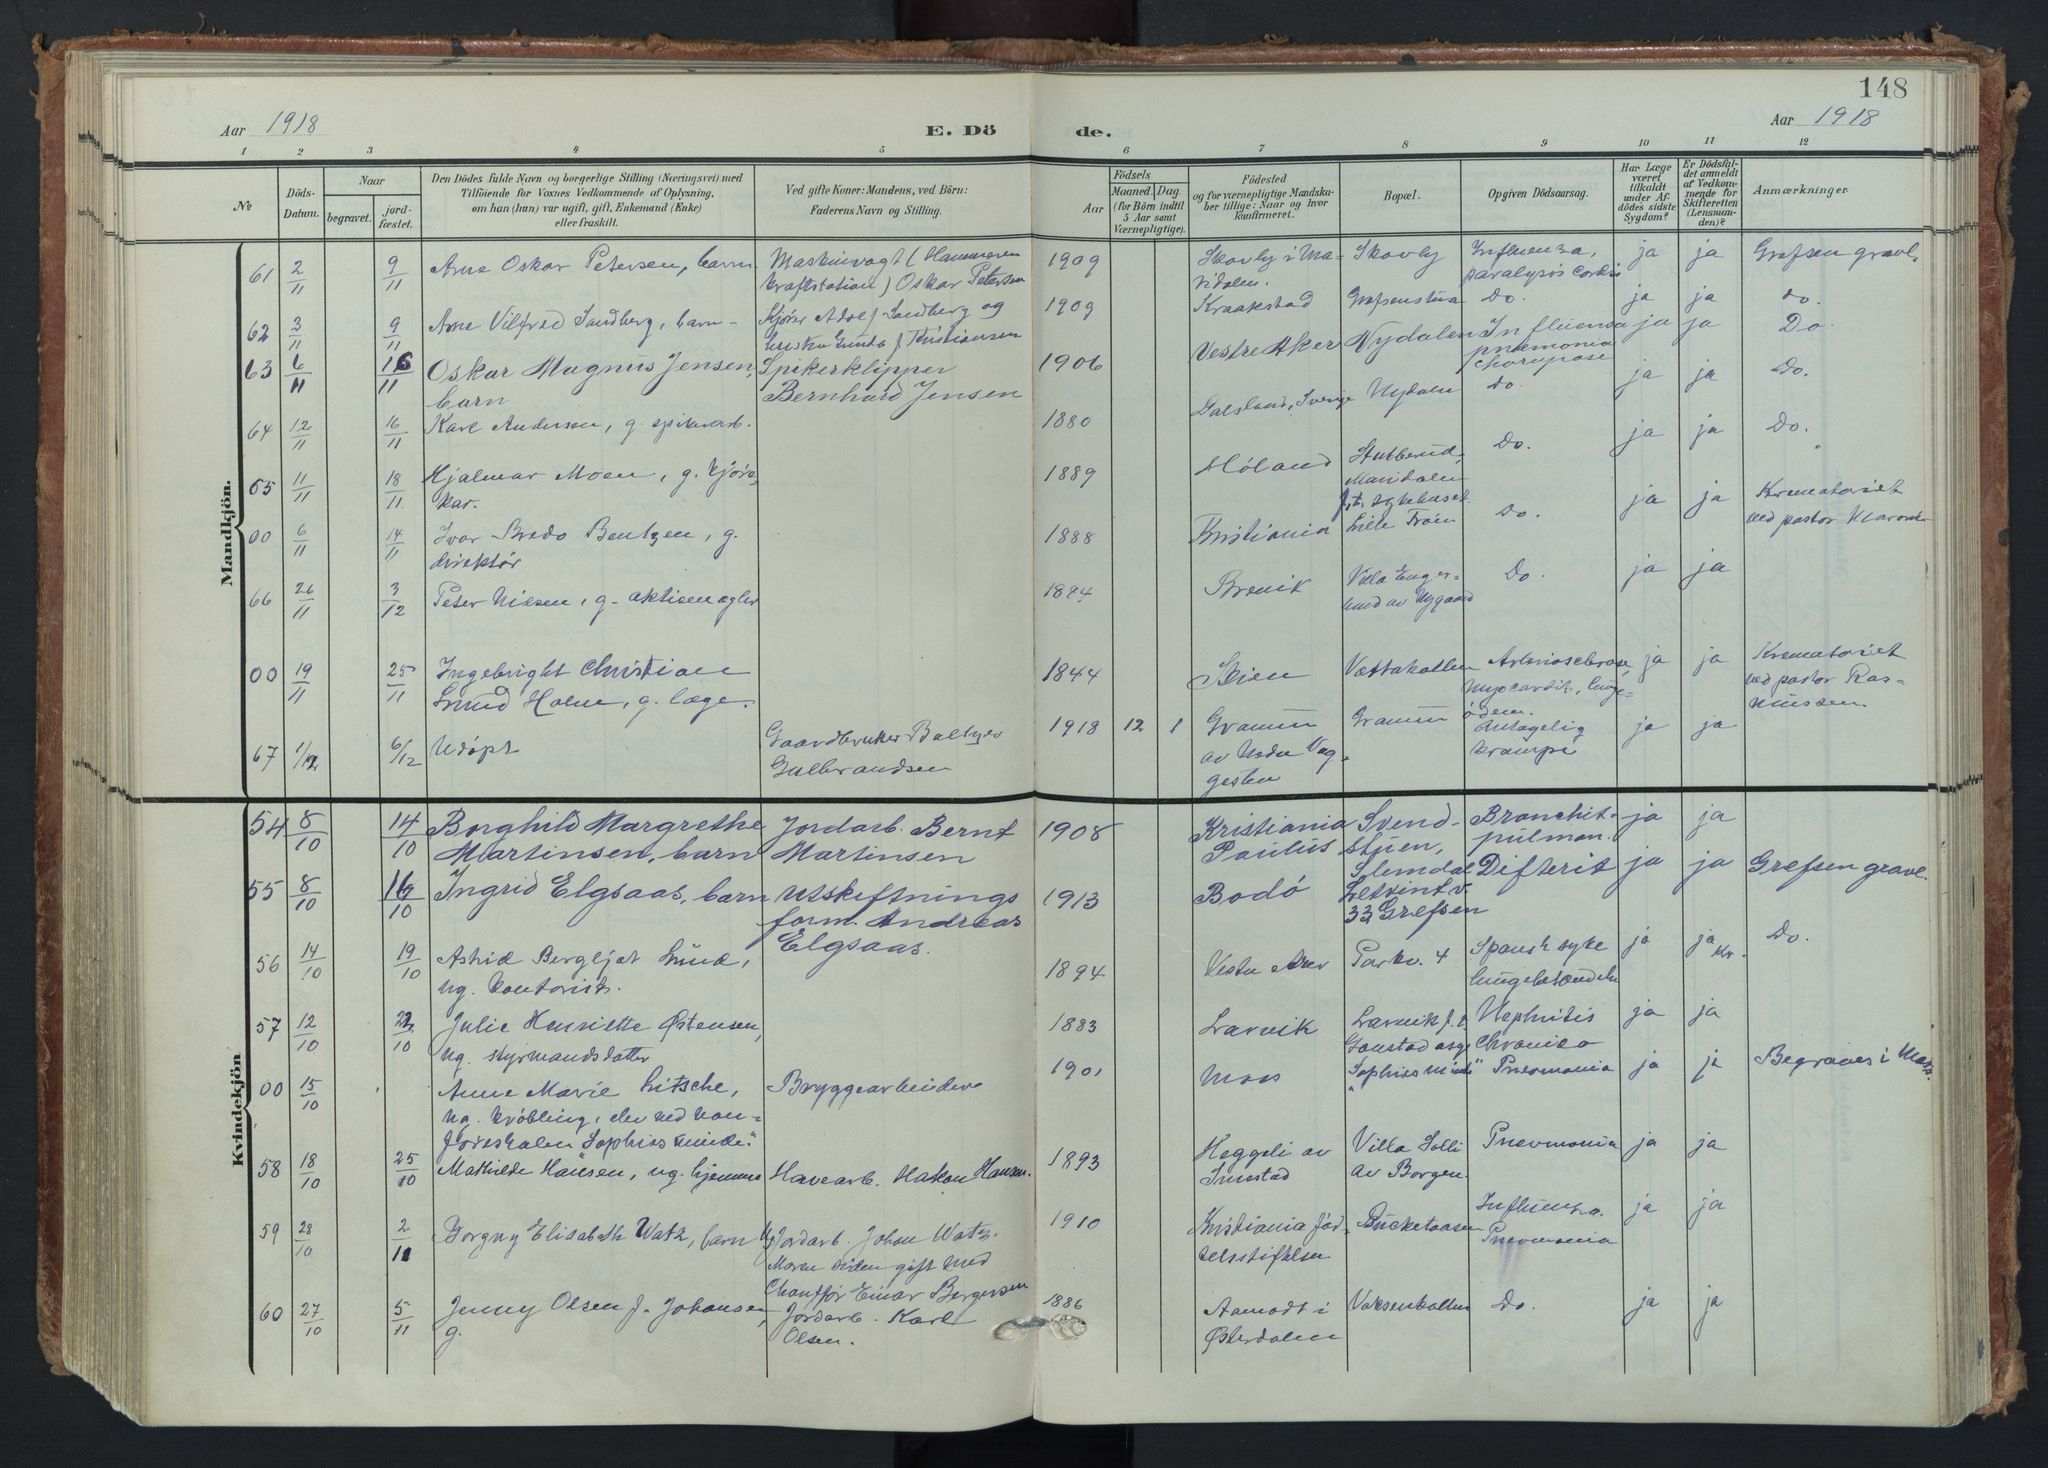 148
Aar 1918
E. Dö
de.
Aar 1918
1 2 3 4 5 6 7 8 9 10 11 12
№
Döds-
Datum.
Naar
begravet.
jord-
fæstet.
Den Dödes fulde Navn og borgerlige Stilling (Næringsvei) med
Tilföiende for Voxnes Vedkommende af Oplysning,
om han (hun) var ugift, gift, Enkemand (Enke)
eller fraskilt.
Ved gifte Koner: Mandens, ved Börn:
Faderens Navn og Stilling.
Födsels
Aar
Maaned. Dag.
(for Börn indtil
5 Aar samt
Værnepligtige).
Födested
og for værnepligtige Mandska-
ber tillige: Naar og hvor
konfirmeret.
Bopæl.
Opgiven Dödsaarsag.
Har Læge
været
tilkaldt
under Af-
dödes sidste
Sygdom?
Er Dödsfal-
det anmeldt
af Vedkom-
mende for
Skifteretten
(Lensman-
den)?
Anmærkninger
Mandkjön.
61 2/11 9/11 Arne Oskar Petersen, barn Maskinvagt (Hammeren 1909 Skovly i Ma- Skovly Influenza, ja ja Grefsen gravl.
kraftstation) Oskar Petersen ridalen. paralysis cordis
62 3/11 9/11 Arne Vilfred Sandberg, barn Kjører Adolf Sandberg og 1909 Kraakstad Grefsenstua Do. ja ja do.
hustru Gunda f. Kristiansen
63 6/11 16/11 Oskar Magnus Jensen, Spikerklipper 1906 Vestre Aker Nydalen Influensa ja ja Do.
barn Bernhard Jensen pnemonia
chorupose
64 12/11 16/11 Karl Andersen, g. spikerarb. 1880 Dalsland, Sverige Nydalen Do. ja ja Do.
65 11/11 18/11 Hjalmar Moen, g. kjøre- 1889 Høland Stubberud, Do. ja ja Do.
kar. Maridalen
f.t. sykehuset
00 6/11 14/11 Ivar Bredo Bentzen, g. 1888 Kristiania Lille Frøen Do. ja ja Krematoriet
direktør ved pastor
66 26/11 3/12 Peter Nilsen, g. aktiemægler 1874 Brevik Villa Enger- Do. ja ja
lund av Nygaard
00 19/11 25/11 Ingebright Christian 1844 Skien Vettakollen Arteriosclerose, ja ja Krematoriet
Lund Holm, g. læge. Myocardit, lunge- ved pastor Ras-
ødem. mussen.
67 1/12 6/12 Udøpt Gaardbruker Baltzer 1918 12 1 Gramm Gramm Antagelig ja ja
Gulbrandsen av Nedre Vog- krampe
gesten
Kvindekjön.
54 8/10 14/10 Borghild Margrethe Jordarb. Bernt 1908 Kristiania Svend- Bronchit- ja ja
Martinsen, barn Martinsen Paulus stuen, pulmon.
Slemdal
55 8/10 16/10 Ingrid Elgsaas, barn Utskiftnings 1913 Bodø Letvintv. Difterit ja ja Grefsen gravl.
form. Andreas 33, Grefsen
Elgsaas.
56 14/10 19/10 Astrid Bergljot Lund, 1894 Vestre Aker Parkv. 4 Spansk syke ja ja Kr. Do.
ug. kontorist. lungebetændelse
57 12/10 22/10 Julie Henriette Østensen, 1883 Larvik Larvik f.t. Nephritis ja ja
ug. styrmandsdatter Gaustad asyl Chronica
00 15/10 Anne Marie Litsche, Bryggearbeider 1901 Moss "Sophies Minde" Pnevmonia ja ja Begraves i Moss.
ug. krøbling, elev ved van-
føreskolen "Sophies minde."
58 18/10 25/10 Mathilde Hansen, ug. hjemme Havearb. Hakon Hansen. 1893 Heggeli av Villa Solli Pnevmonia ja ja
Smestad av Borgen.
59 28/10 2/11 Borgny Elisabeth Watz, barn Jordarb. Johan Watz. 1910 Kristiania fød- Bücketaasen Influenza. ja ja
Moren siden gift med selsstiftelsen Pnevmonia
Chauffør Einar Bergersen
60 27/10 5/11 Jenny Olsen f. Johansen, Jordarb. Karl 1886 Aamodt i Voksenkollen Do. ja ja
g. Olsen. Østerdalen